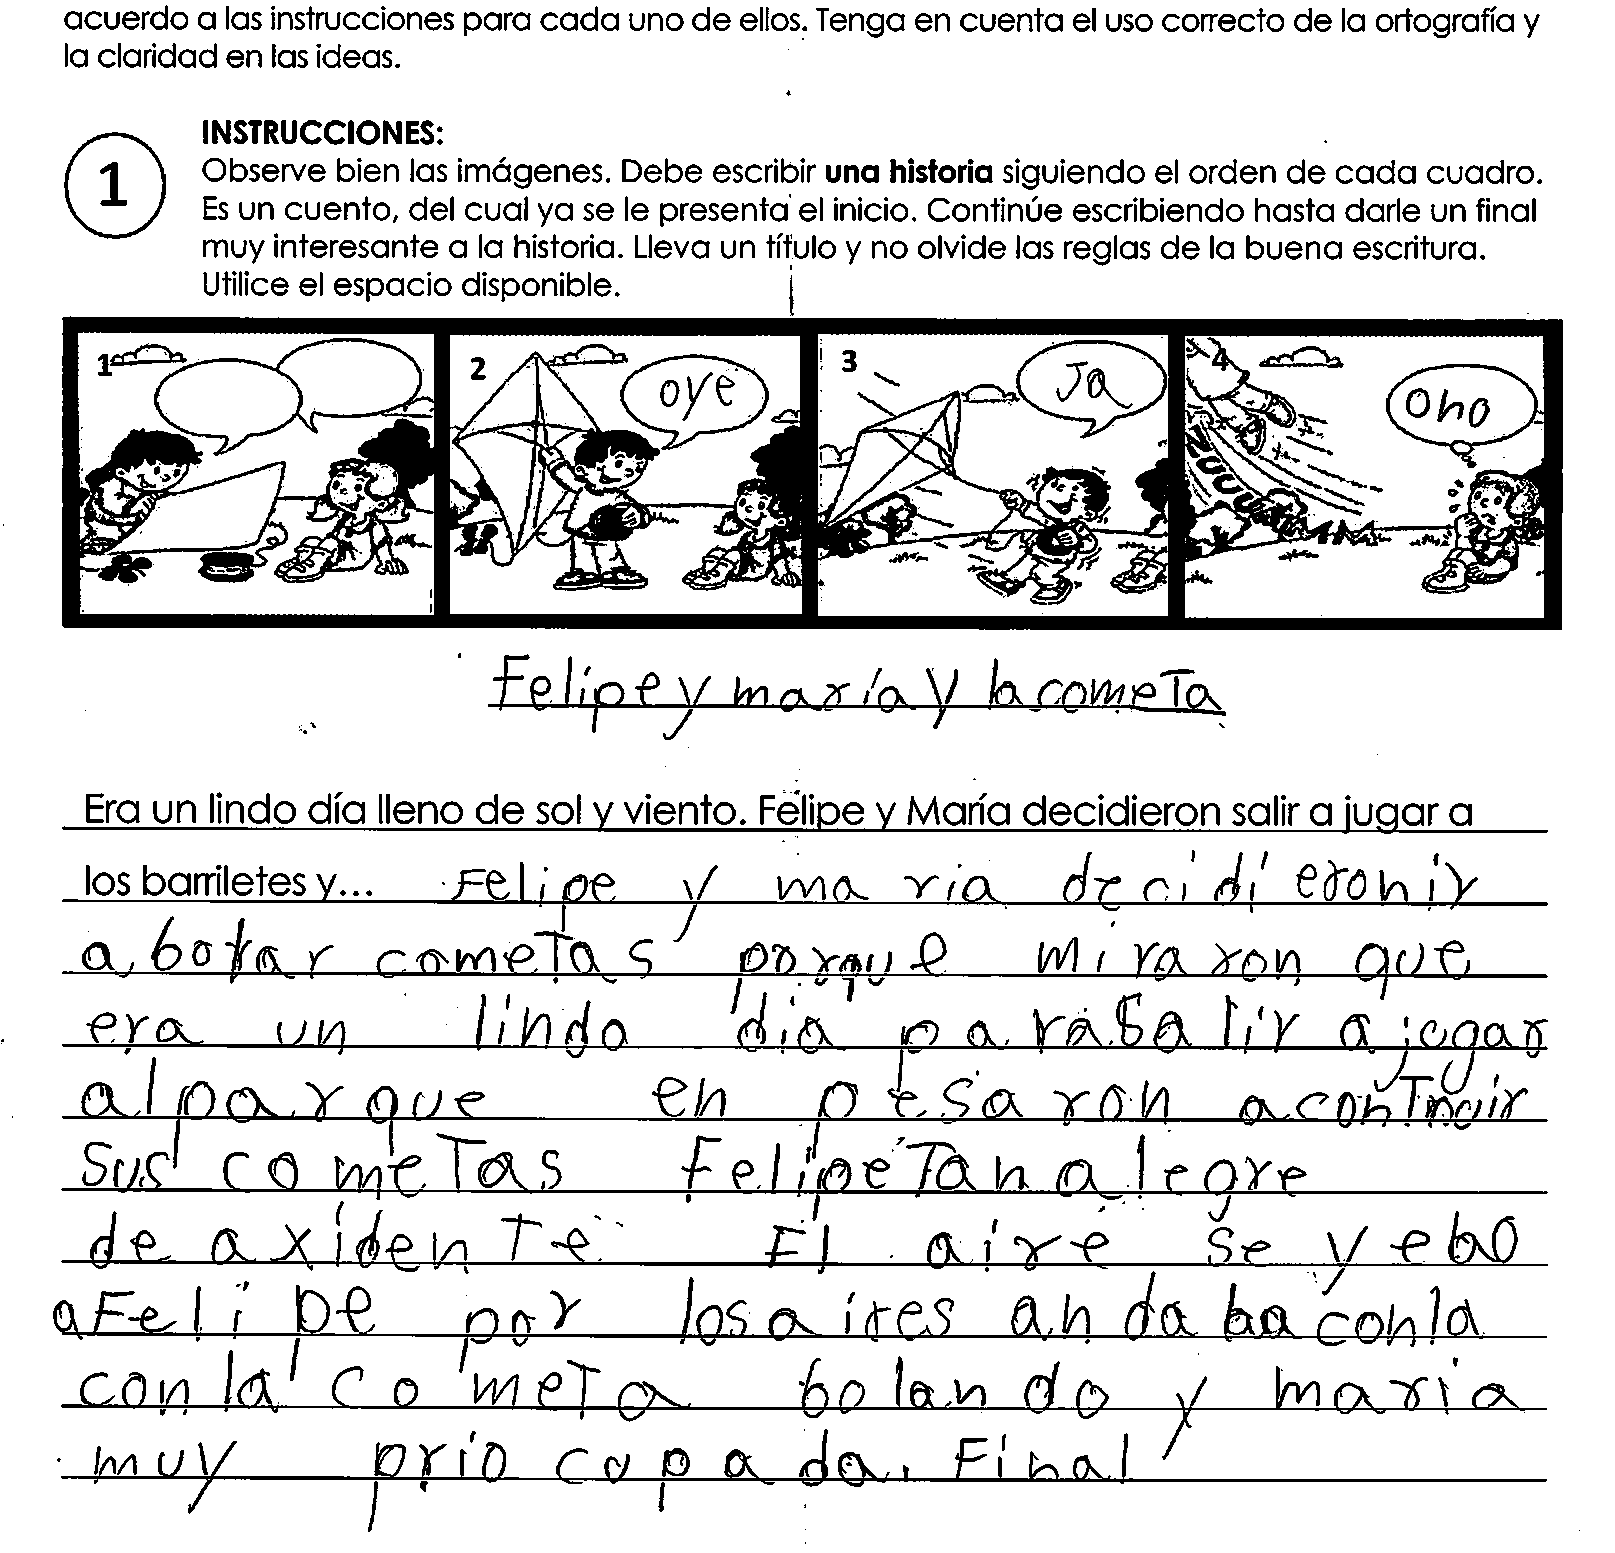 acuerdo a las instrucciones para cada uno de ellos. Tenga en cuenta el uso correcto de la ortografía y
la claridad en las ideas.
1
INSTRUCCIONES:
Observe bien las imágenes. Debe escribir una historia siguiendo el orden de cada cuadro.
Es un cuento, del cual ya se le presenta el inicio. Continúe escribiendo hasta darle un final
muy interesante a la historia. Lleva un título y no olvide las reglas de la buena escritura.
Utilice el espacio disponible.
1
2
oye
3
Ja
4
oho
Felipe y maría y la cometa
Era un lindo día lleno de sol y viento. Felipe y María decidieron salir a jugar a
los barriletes y... Felipe y maria decidieron ir
a botar cometas porque miraron que
era un lindo dia para salir a jugar
al parque en pesaron a
sus cometas Felipe Tan alegre
de axidente El aire se yebo
a Felipe por los aires andaba con la
con la cometa bolando y maria
muy priocupada. Final